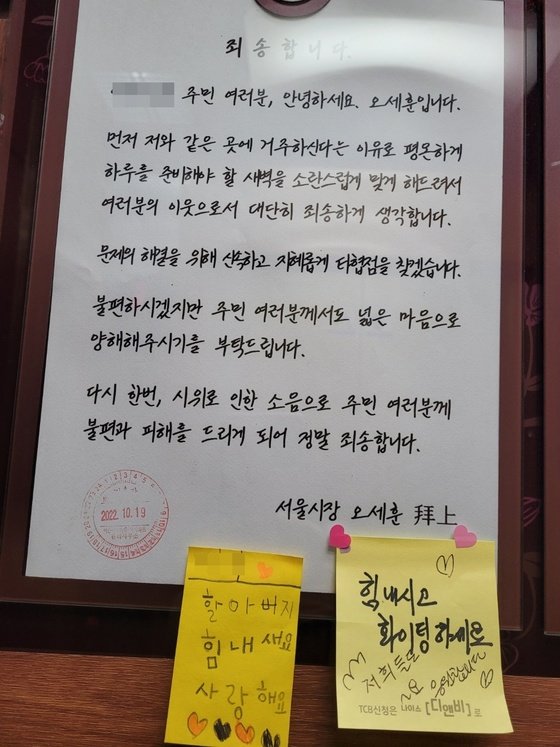 죄송합니다.
주민 여러분, 안녕하세요. 오세훈입니다.
먼저 저와 같은 곳에 거주하신다는 이유로 평온하게
하루를 준비해야 할 새벽을 소란스럽게 맞게 해드려서
여러분의 이웃으로서 대단히 죄송하게 생각합니다.
문제의 해결을 위해 신속하고 지혜롭게 타협점을 찾겠습니다.
불편하시겠지만 주민 여러분께서도 넓은 마음으로
양해해주시기를 부탁드립니다.
다시 한번, 시위로 인한 소음으로 주민 여러분께
불편과 피해를 드리게 되어 정말 죄송합니다.
서울시장 오세훈 拜上
2022.10.19
할아버지
힘내새요
사랑해요
힘내시고
화이팅하세요
저희들도
응원합니다
TCB신청은 나이스 [디앤비]로